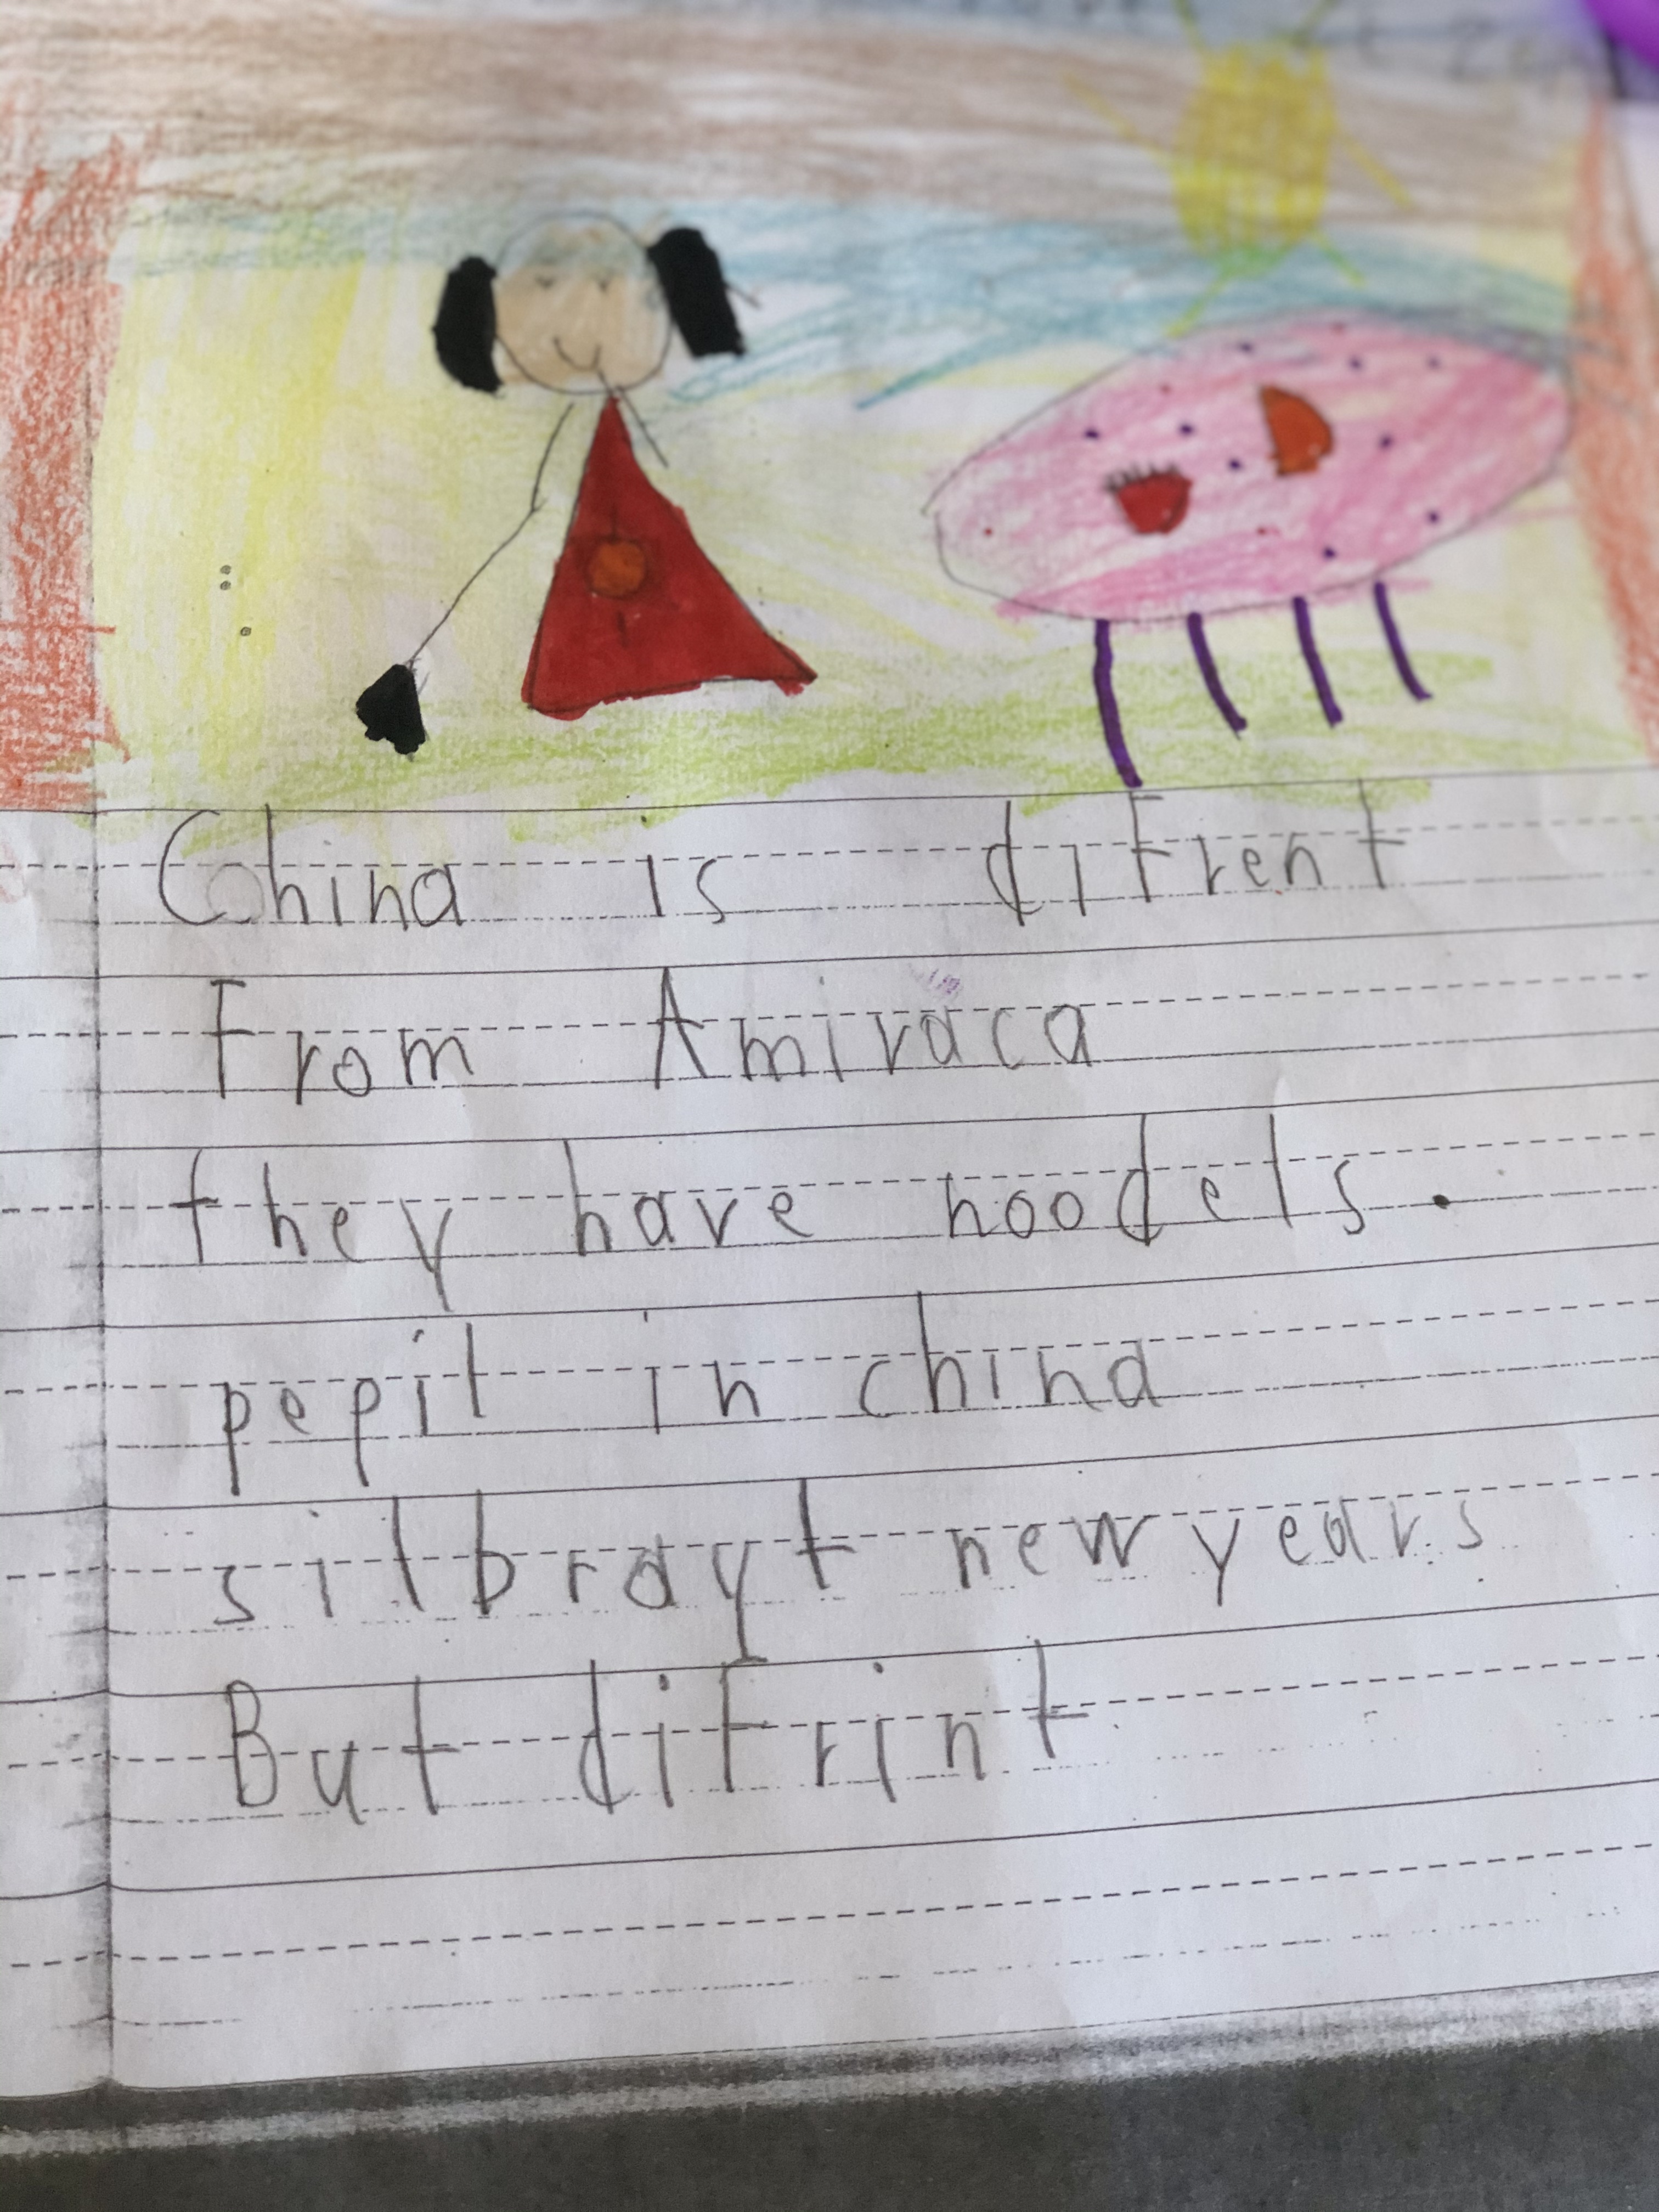 China is difrent
From Amiraca
they have noodels.
pepil in china
silbrayt new years
But difrint